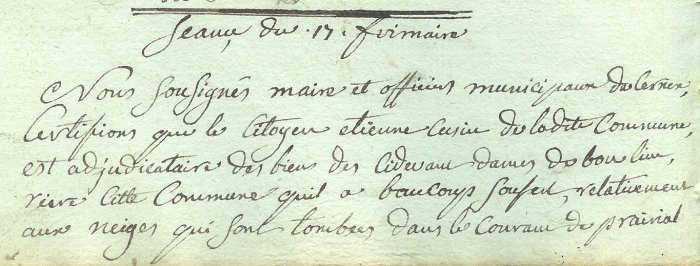 Seance du .17. frimaire
Nous sousignés maire et officiers municipaux de Cernex,
Certifions que le Citoyen etienne Cusin de ladite Commune
est adjudicataire des biens des cidevant dames de bon lieu,
riere cette Commune quil a beaucoups soufert, relativement
aux neiges qui sont tombées dans le Courant de prairial